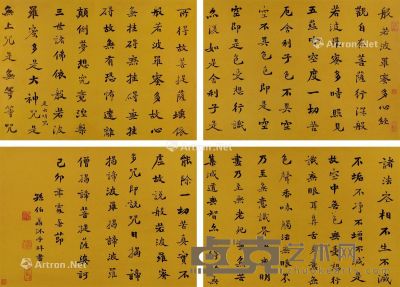 般若波羅蜜多心經
觀自在菩薩行深般
若波羅蜜多時照見
五蘊皆空度一切苦
厄舍利子色不異空
空不異色色即是空
空即是色受想行識
亦復如是舍利子是
諸法空相不生不滅
不垢不淨不增不減是
故空中無色無受想行
識無眼耳鼻舌身意無
色聲香味觸法無眼界
乃至無意識界無無明亦無無明
盡乃至無老死亦無老死盡無苦
集滅道無智亦無得以無
所得故菩提薩埵依
般若波羅蜜多故心
無罣礙無罣礙
故無有恐怖遠離
顛倒夢想究竟涅槃
三世諸佛依般若波
羅蜜多是大神咒是
是大明咒
無上咒是無等等咒
能除一切苦真實不
虛故說般若波羅蜜
多咒即說咒曰揭諦
揭諦波羅揭諦波羅
僧揭諦菩提薩婆訶
己卯
沐手
Art
Artron.Net